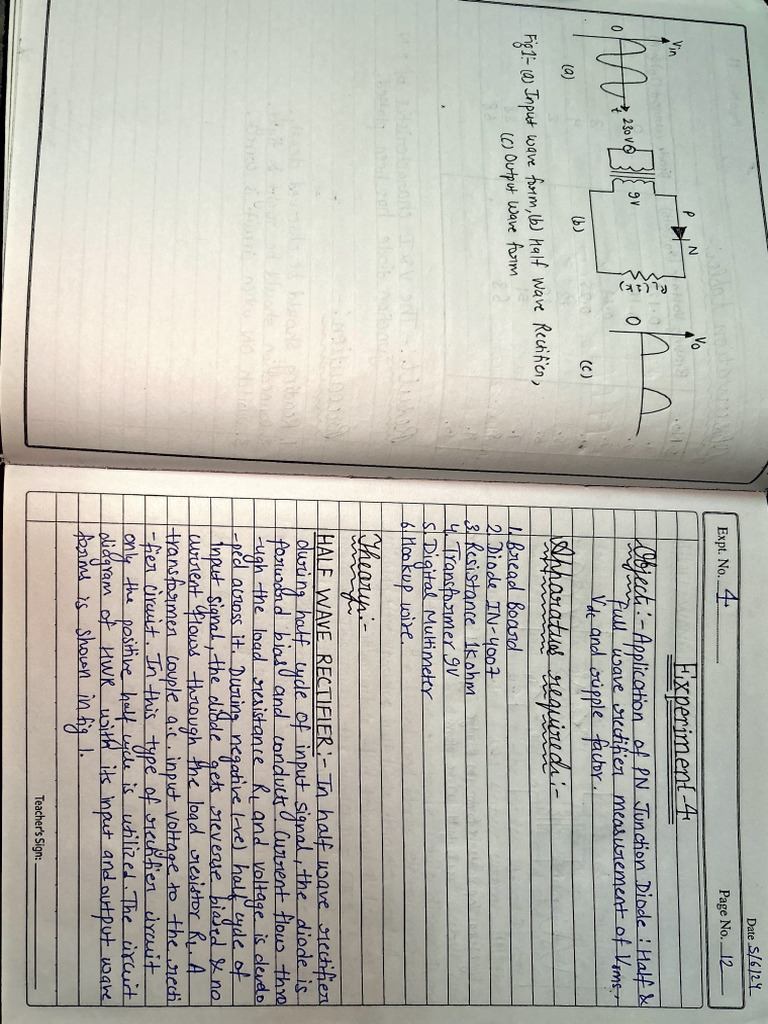 Vin
0
t
(a)
230V
9V
P
N
(b)
Vo
0
(c)
Fig1:- (a) Input wave form, (b) Half Wave Rectifier,
(c) Output Wave form
Date 5/6/24
Expt. No. 4
Page No. 12
Experiment-4
Object:- Application of PN Junction Diode: Half &
Full wave rectifier measurement of Vrms,
Vdc and ripple factor.
Apparatus required:-
1. Bread Board
2. Diode IN-4007
3. Resistance 1kohm
4. Transformer 9V
5. Digital Multimeter
6. Hookup wire.
Theory:-
HALF WAVE RECTIFIER:- In half wave rectifier
during half cycle of input signal, the diode is
forward bias and conducts. Current flow thro
-ugh the load resistance RL and voltage is devlo
-ped across it. During negative (-ve) half cycle of
input signal, the diode gets reverse biased & no
current flows through the load resistor RL. A
transformer couple a.c. input voltage to the recti
-fier circuit. In this type of rectifier circuit
only the positive half cycle is utilized. The circuit
diagram of HWR with its input and output wave
forms is shown in fig 1.
Teacher's Sign: